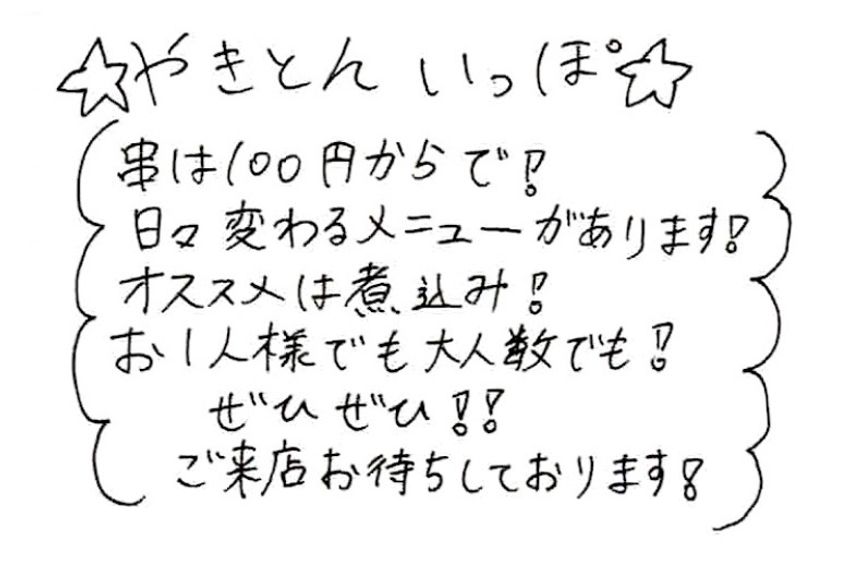 ☆やきとん いっぽ☆
串は100円からで!
日々変わるメニューがあります!
オススメは煮込み!
お1人様でも大人数でも!
ぜひぜひ!!
ご来店お待ちしております!